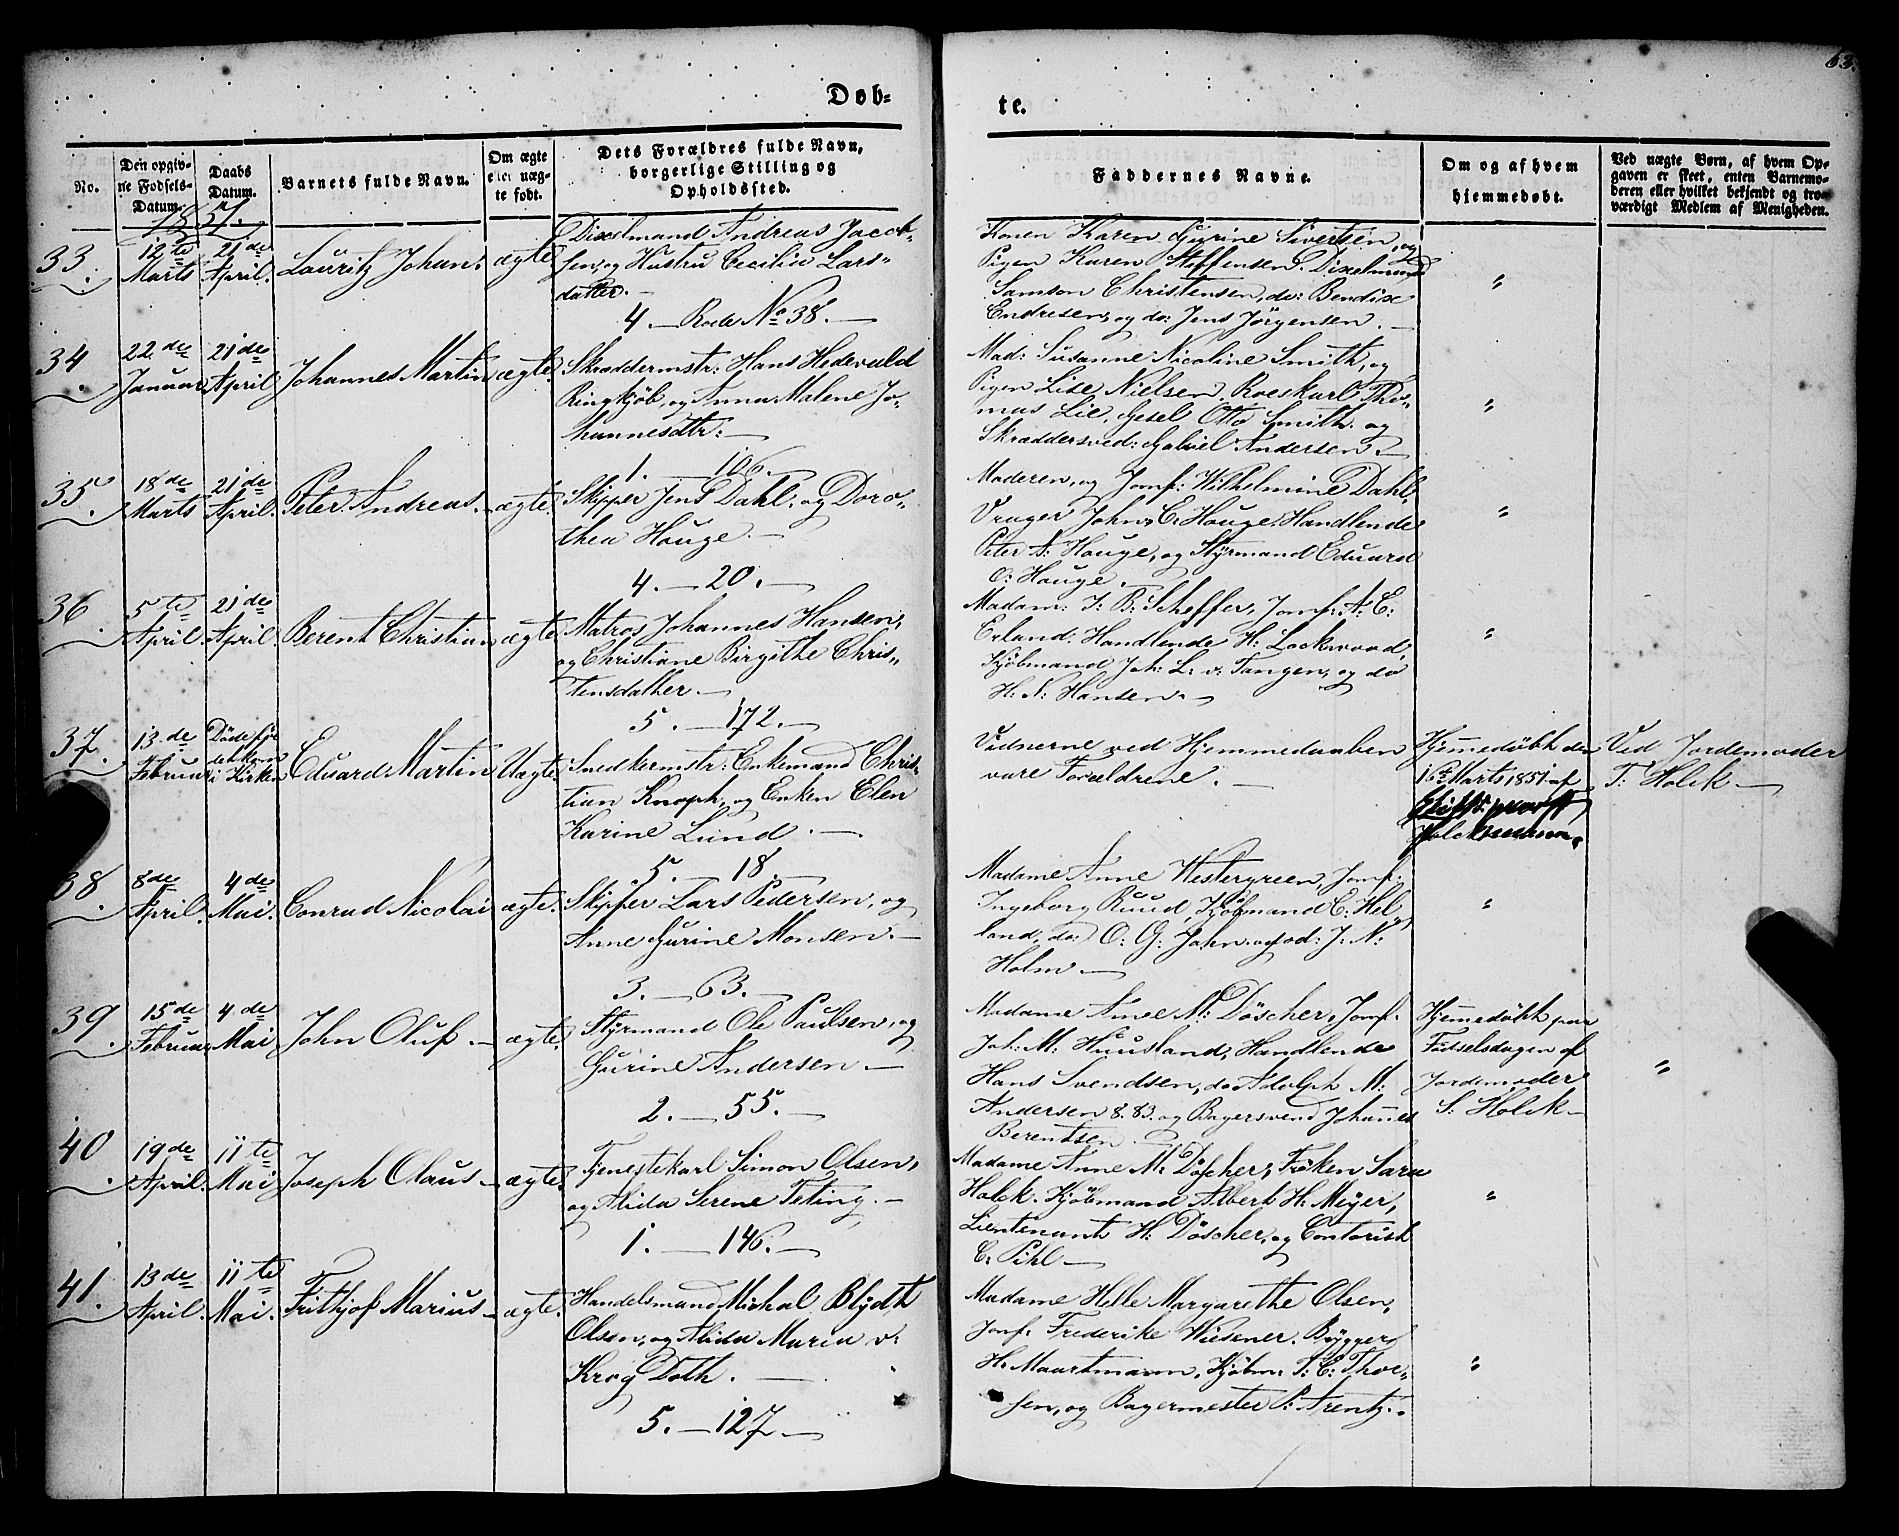 63.
Døb-
te.
No.
Den opgiv-
ne Fødsels-
Datum.
Daabs
Datum.
Barnets fulde Navn.
Om ægte
eler uæg-
te født.
Dets Forældres fulde Navn,
borgerlige Stilling og
Opholdssted.
Faddernes Navne.
Om og af hvem
hjemmedøbt.
Ved uægte Børn, af hvem Op-
gaven er skeet, enten Barnemo-
deren eller hvilket bekjendt og tro-
værdigt Medlem af Menigheden.
1851.
33.
12te
Marts
21de
April.
Lauritz Johan.
ægte
Dixelmand Andreas Jacob-
sen, og Hustru Cecilia Lars-
datter.
4. — Rode No 38. —
Konen Karen Gurine Sivertsen, og
Pigen Karen Steffensen. Dixelmand
Samson Christensen, do: Bendix
Endresen, og do: Jens Jørgensen. —
"
34.
22de
Januar
21de
April
Johannes Martin
ægte.
Skræddermstr: Hans Hedevald
Ringkjöb, og Anna Malene Jo-
hannesdtr: —
1. — 106. —
Mad: Susanne Nicoline Smith, og
Pigen Lise Nielsen. Roeskarl Tho-
mas Lie, Gesel Otto Smith og
Skræddersved: Gabriel Andersen. —
"
35.
18de
Marts
21de
April.
Peter Andreas. —
ægte.
Skipper Jens Dahl, og Doro-
thea Hauge. —
4. — 20. —
Moderen, og Jomf: Wilhelmine Dahl.
Vrager John E. Hauge. Handlende
Peter A: Hauge, og Styrmand Eduard
O: Hauge.
"
36.
5te
April.
21de
April.
Berent Christian
ægte
Matros Johannes Hansen,
og Christiane Birgithe Chris-
tensdatter. —
5. — 172. —
Madam: J: B: Scheffer, Jomf: A: C:
Erland: Handlende H: Lockwood,
Kjöbmand Joh: L: v: Tangen, og do
H: N: Hansen. —
"
37.
13de
Februar
Døde før
det kom
i Kirken
Eduard Martin
Uægte.
Snedkermstr: Enkemand Chris-
tian Knoph, og Enken Elen
Karine Lund. —
5. — 18. —
Vidnerne ved Hjemmedaaben
vare Forældrene. —
Hjemmedøbt den
16te Marts 1851 af
Ved Jordemoder
T: Holck —
38.
8de
April.
4de
Mai.
Conrad Nicolai
ægte.
Skipper Lars Pedersen, og
Anne Gurine Monsen. —
3. — 63. —
Madame Anne Westergreen, Jomf:
Ingeborg Ruud, Kjöbmand C: Hel-
land, do: O: G: Jahn og do: J: N:
Holm —
"
39.
15de
Februar
4de
Mai
John Oluf. —
ægte.
Styrmand Ole Paulsen, og
Gurine Andersen —
2. — 55. —
Madame Anne M: Döscher, Jomf.
Joh: M: Huusland, Handlende
Hans Svendsen, do Adolph M:
Andersen 8.83. og Bagersvend Johannes
Berentsen. —
Hjemmedøbt paa
Fødselsdagen af
Jordemoder
S. Holck —
"
40.
19de
April.
11te
Mai
Joseph Olaus. —
ægte.
Tjenestekarl Simon Olsen,
og Alida Serene Teting. —
1. — 146. —
Madame Anne M: Döscher, Frøken Sara
Holck. Kjöbmand Albert H: Meyer,
Lieutenant H: Döscher, og Contorist
C: Pihl —
"
41.
13de
April.
11te
Mai.
Frithjof Marius —
ægte.
Handelsmand Michal Blydt
Olsen, og Alida Maria v:
Krog Toth. —
5. — 127. —
Madame Helle Margarethe Olsen,
Jomf. Frederike Wiesener. Brygger
H: Maartmann, Kjöbm: T: C: Thoe-
sen, og Bagermester P: Arentz. —
"